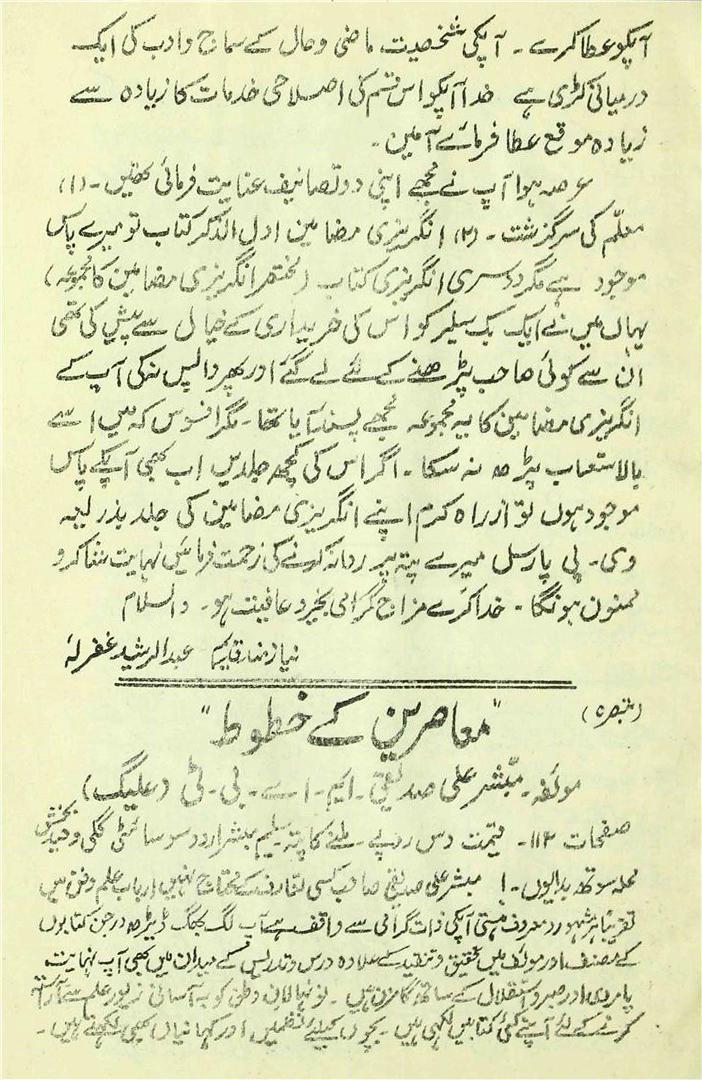 آپکو عطا کرے ۔ آپکی شخصیت ماضی و حال کے سماج و ادب کی ایک
درمیانی کڑی ہے خدا آپکو اس قسم کی اصلاحی خدمات کا زیادہ سے
زیادہ موقع عطا فرمائے آمین ۔
عرصہ ہوا آپ نے مجھے اپنی دو تصانیف عنایت فرمائی تھیں ۔ (۱)
معلّم کی سرگزشت ۔ (۲) انگریزی مضامین اول الذکر کتاب تو میرے پاس
موجود ہے مگر دوسری انگریزی کتاب (مختصر انگریزی مضامین کا مجموعہ)
یہاں میں نے ایک بک سیلر کو اس کی خریداری کے خیال سے پیش کی تھی
ان سے کوئی صاحب پڑھنے کے لئے لے گئے اور پھر واپس نہ کی آپ کے
انگریزی مضامین کا یہ مجموعہ مجھے پسند آیا تھا ۔ مگر افسوس کہ میں اسے
بالاستعاب پڑھ نہ سکا ۔ اگر اس کی کچھ جلدیں اب بھی آپکے پاس
موجود ہوں تو از راہ کرم اپنے انگریزی مضامین کی جلد بذریعہ
وی ۔ پی پارسل میرے پتہ پر روانہ کرنے کی زحمت فرمائیں نہایت شاکر و
ممنون ہونگا ۔ خدا کرے مزاج گرامی بخیر و عافیت ہو ۔ والسلام
نیازمند قدیم عبدالرشید غفرلہٗ
(تبصرہ) "معاصرین کے خطوط"
مولفہ ۔ مبشر علی صدیقی ۔ ایم ۔ اے ۔ بی ۔ ٹی (علیگ)
صفحات ۱۱۳ ۔ قیمت دس روپے ۔ ملنے کا پتہ ۔ سلیم مبشر اردو سوسائٹی گلی وحید بخش
محلہ سوتھہ بدایوں ۔ ! مبشر علی صدیقی صاحب کسی تعارف کے محتاج نہیں ارباب علم و فن میں
تقریباً ہر مشہور و معروف ہستی آپکی ذات گرامی سے واقف ہے آپ لگ بھگ ڈیڑھ درجن کتابوں
کے مصنف اور مولف ہیں تحقیق و تنقید کے علاوہ درس و تدریس کے میدان میں بھی آپ نہایت
پامردی اور صبر و استقلال کے ساتھ گامزن ہیں ۔ نونہالان وطن کو بہ آسانی زیور علم سے آراستہ
کرنے کے لئے آپنے کئی کتابیں لکھی ہیں ۔ بچوں کیلئے نظمیں اور کہانیاں بھی لکھتے ہیں ۔